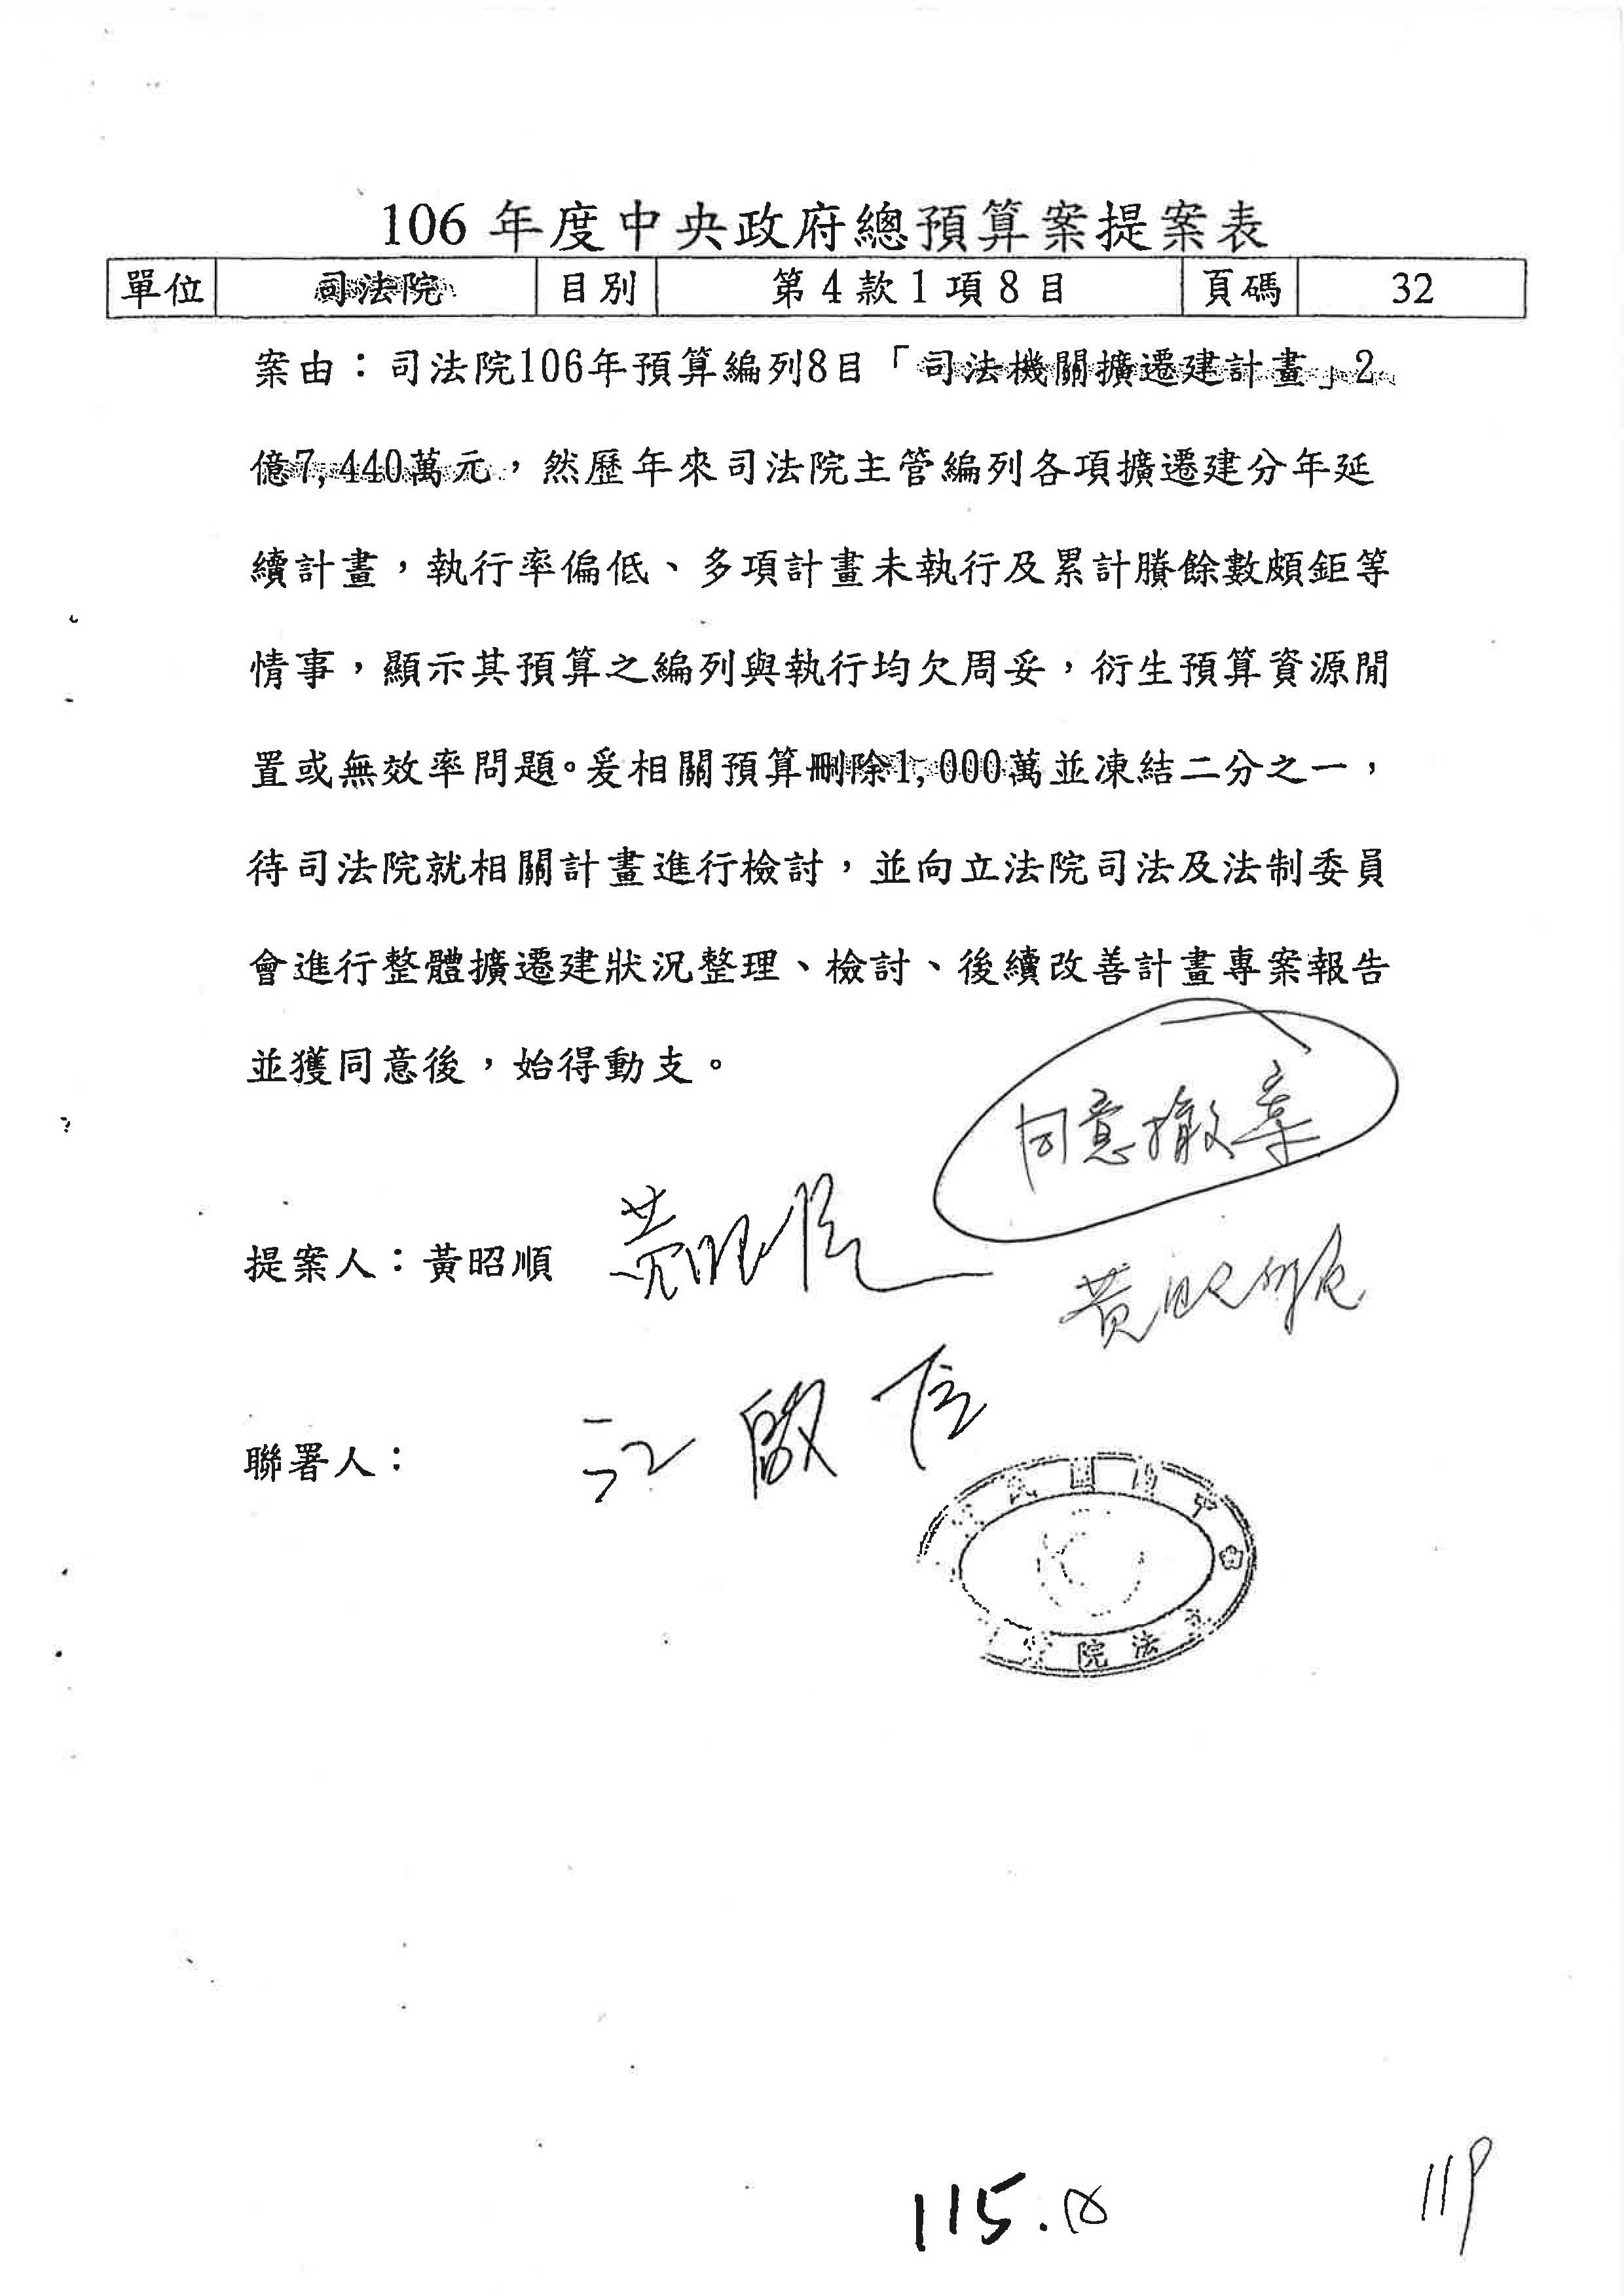 106 年度中央政府總預算案提案表
單位 司法院 目別 第4款1項8目 頁碼 32
案由：司法院106年預算編列8目「司法機關擴遷建計畫」2
億7,440萬元，然歷年來司法院主管編列各項擴遷建分年延
續計畫，執行率偏低、多項計畫未執行及累計賸餘數頗鉅等
情事，顯示其預算之編列與執行均欠周妥，衍生預算資源閒
置或無效率問題。爰相關預算刪除1,000萬並凍結二分之一，
待司法院就相關計畫進行檢討，並向立法院司法及法制委員
會進行整體擴遷建狀況整理、檢討、後續改善計畫專案報告
並獲同意後，始得動支。
同意撤案
提案人：黃昭順 黃昭順
黃昭順
聯署人： 江啟臣
中 國 民
立法院
115.
119